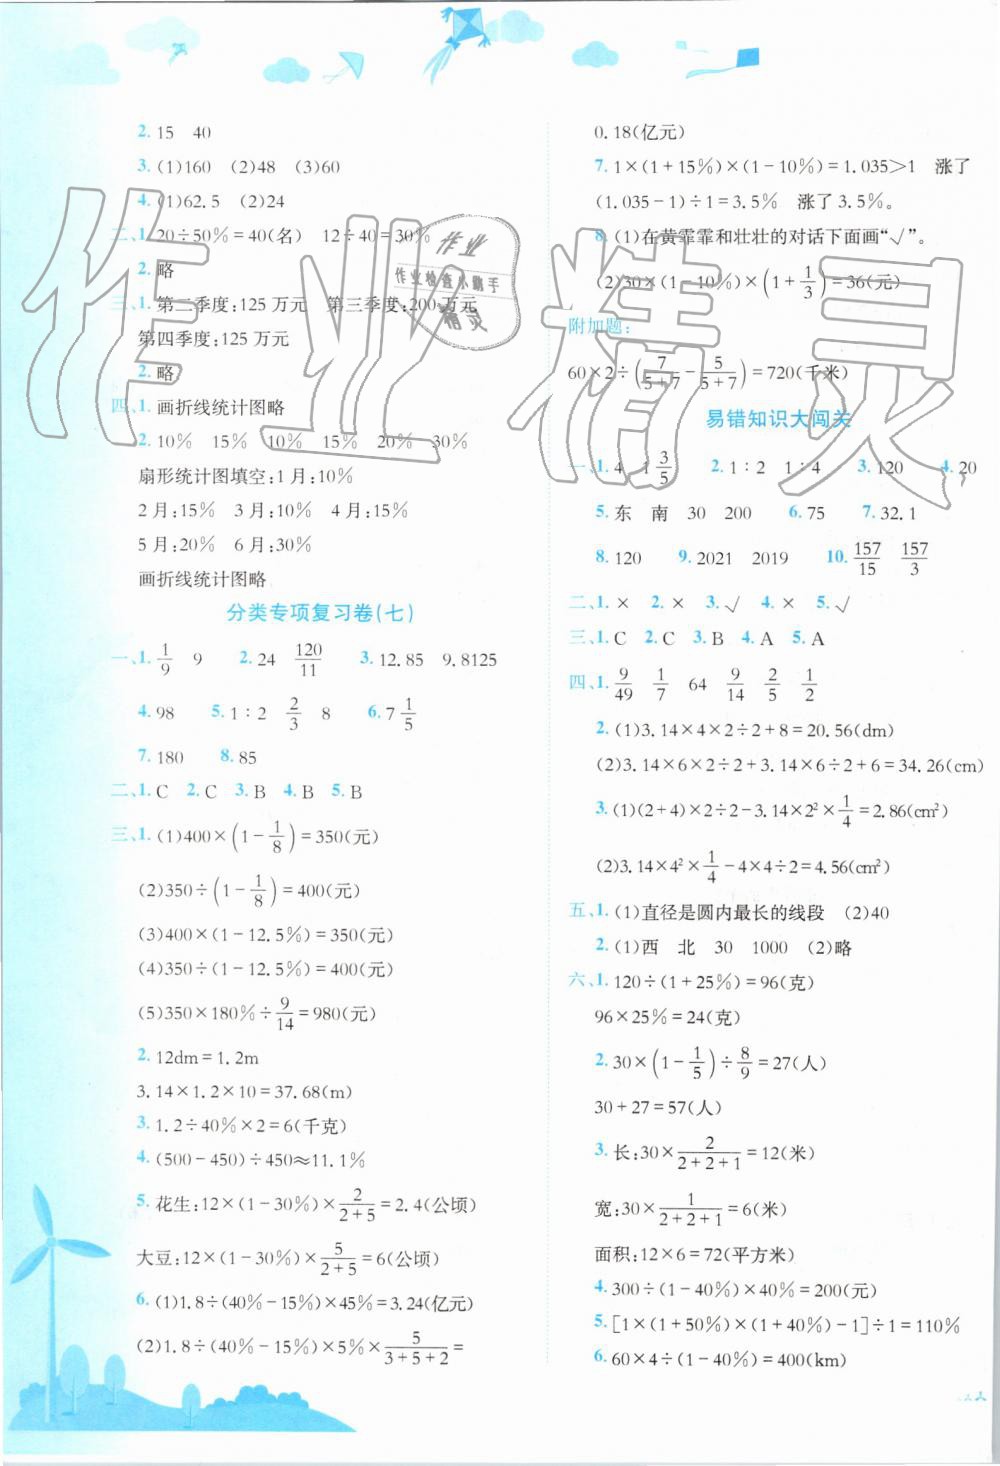 2. 15 40
3. (1)160 (2)48 (3)60
4. (1)62.5 (2)24
二、1. 20÷50%=40(名) 12÷40=30%
2. 略
三、1. 第二季度:125万元 第三季度:200万元
第四季度:125万元
2. 略
四、1. 画折线统计图略
2. 10% 15% 10% 15% 20% 30%
扇形统计图填空:1月:10%
2月:15% 3月:10% 4月:15%
5月:20% 6月:30%
画折线统计图略
分类专项复习卷(七)
一、1. 1/9 9 2. 24 120/11 3. 12.85 9.8125
4. 98 5. 1∶2 2/3 8 6. 7 1/5
7. 180 8. 85
二、1. C 2. C 3. B 4. B 5. B
三、1. (1)400×(1-1/8)=350(元)
(2)350÷(1-1/8)=400(元)
(3)400×(1-12.5%)=350(元)
(4)350÷(1-12.5%)=400(元)
(5)350×180%÷9/14=980(元)
2. 12dm=1.2m
3.14×1.2×10=37.68(m)
3. 1.2÷40%×2=6(千克)
4. (500-450)÷450≈11.1%
5. 花生:12×(1-30%)×2/(2+5)=2.4(公顷)
大豆:12×(1-30%)×5/(2+5)=6(公顷)
6. (1)1.8÷(40%-15%)×45%=3.24(亿元)
(2)1.8÷(40%-15%)×5%×5/(3+5+2)=
0.18(亿元)
7. 1×(1+15%)×(1-10%)=1.035>1 涨了
(1.035-1)÷1=3.5% 涨了3.5%。
8. (1)在黄霏霏和壮壮的对话下面画“√”。
(2)30×(1-10%)×(1+1/3)=36(元)
附加题:
60×2÷(7/(5+7)-5/(5+7))=720(千米)
易错知识大闯关
一、1. 4 1 3/5 2. 1∶2 1∶4 3. 120 4. 20
5. 东 南 30 200 6. 75 7. 32.1
8. 120 9. 2021 2019 10. 157/15 157/3
二、1. × 2. × 3. √ 4. × 5. √
三、1. C 2. C 3. B 4. A 5. A
四、1. 9/49 1/7 64 9/14 2/5 1/2
2. (1)3.14×4×2÷2+8=20.56(dm)
(2)3.14×6×2÷2+3.14×6÷2+6=34.26(cm)
3. (1)(2+4)×2÷2-3.14×2²×1/4=2.86(cm²)
(2)3.14×4²×1/4-4×4÷2=4.56(cm²)
五、1. (1)直径是圆内最长的线段 (2)40
2. (1)西 北 30 1000 (2)略
六、1. 120÷(1+25%)=96(克)
96×25%=24(克)
2. 30×(1-1/5)÷8/9=27(人)
30+27=57(人)
3. 长:30×2/(2+2+1)=12(米)
宽:30×1/(2+2+1)=6(米)
面积:12×6=72(平方米)
4. 300÷(1-40%)×40%=200(元)
5. [1×(1+50%)×(1+40%)-1]÷1=110%
6. 60×4÷(1-40%)=400(km)
作业精灵
作业
作业检查小助手
精灵